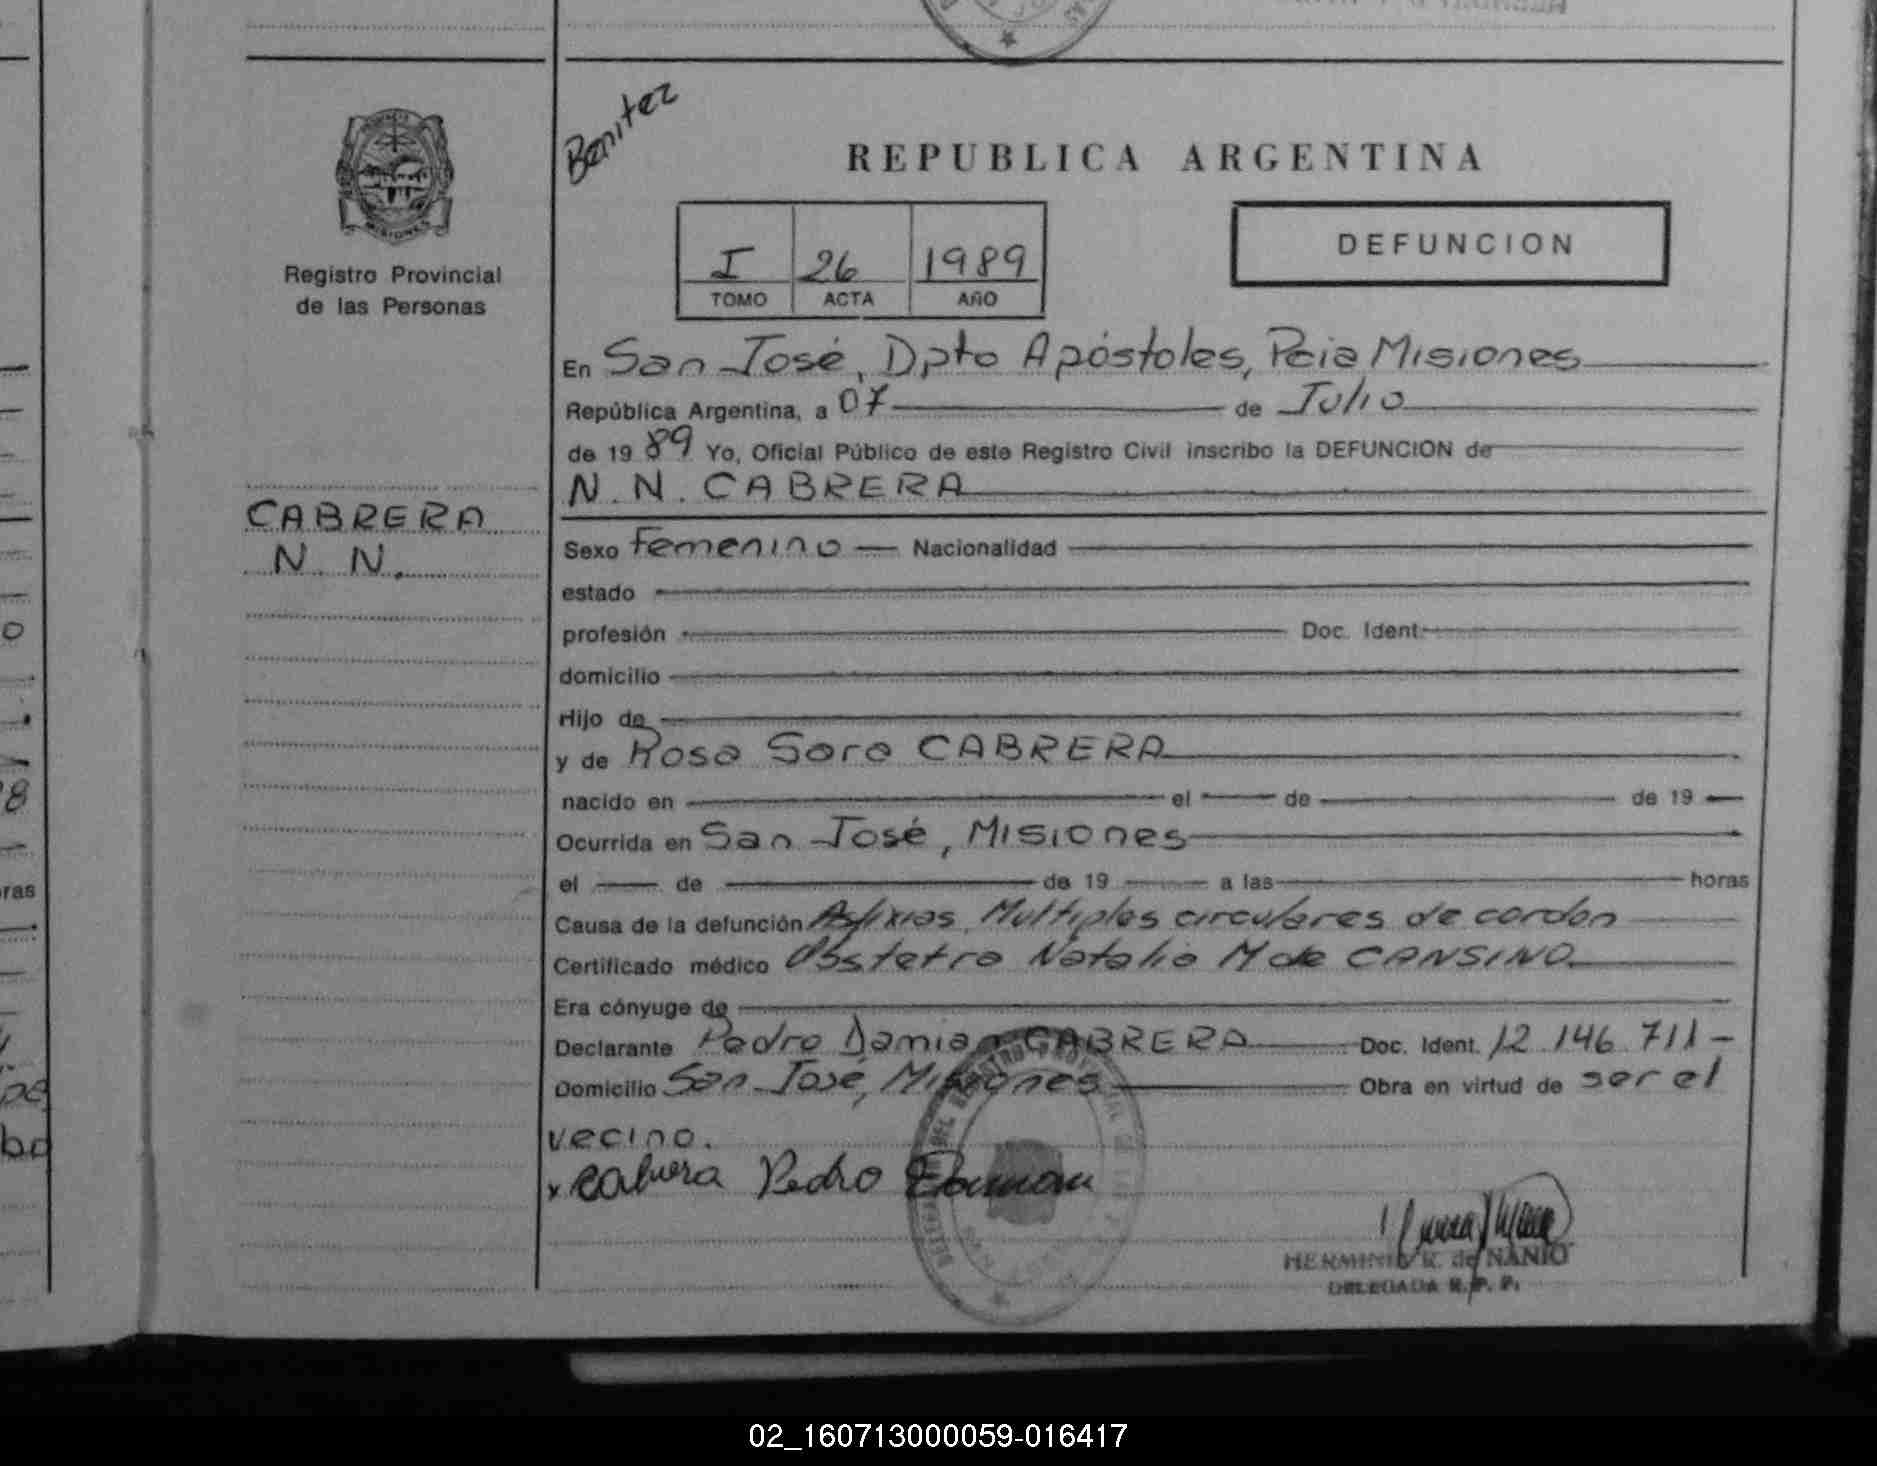 Benitez
REPUBLICA ARGENTINA
DEFUNCION
I 26 1989
TOMO ACTA AÑO
MISIONES
Registro Provincial
de las Personas
CABRERA
N. N.
En San José, Dpto Apóstoles, Pcia Misiones
República Argentina, a 07 de Julio
de 1989 Yo, Oficial Público de este Registro Civil inscribo la DEFUNCION de
N. N. CABRERA
Sexo femenino Nacionalidad
estado
profesión Doc. Ident.
domicilio
Hijo de
y de Rosa Sara CABRERA
nacido en el de de 19
Ocurrida en San José, Misiones
el de de 19 a las horas
Causa de la defunción Asfixias, Multiples circulares de cordon
Certificado médico Obstetra Natalia M de CANSINO
Era cónyuge de
Declarante Pedro Damian CABRERA Doc. Ident. 12.146.711-
Domicilio San José, Misiones Obra en virtud de ser el
vecino.
x Cabrera Pedro Damian
HERMINIA R. de NANIO
DELEGADA R. P. P.
02_160713000059-016417